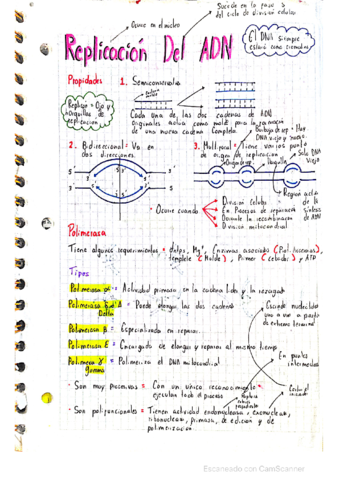 Sucede en la fase S
del ciclo de división celular
Ocurre en el núcleo
Replicación Del ADN
El DNA siempre
estará como cromatina
Propiedades
1. Semiconservativa
Replicón = Ojo y
Horquillas de
replicación
Cada una de las dos cadenas de ADN
Originales actúa como molde para la formación
de una nueva cadena Completa
Burbuja de rep = Hay
DNA viejo y nuevo
2. Bidireccional = Va en
dos direcciones.
3. Multifocal = Tiene varios punto
de origen de replicación
Solo DNA
Viejo
Horquilla
5'
3'
Ocurre cuando
División Celular
En Procesos de reparación
Durante la recombinación
División mitocondrial
Región activa
de la
síntesis
de ADN
Polimerasa
Tiene algunos requerimientos = dNTPs, Mg+, Enzimas asociadas (Pol. accesorias),
template (Molde), Primer (cebador), ATP
Tipos
Polimerasa α = Actividad primasa en la cadena Líder y la rezagada
Polimerasa δ = Puede elongar las dos cadenas
Delta
Polimerasa β = Especializada en reparar
Polimerasa ε = Encargada de elongar y reparar al mismo tiempo
Polimerasa γ = Polimeriza el DNA mitocondrial
gamma
Cuando nucleótidos
uno a uno a partir
de extremo terminal
En partes
intermedias
Son muy procesivas = Con un único reconocimiento
ejecutan todo el proceso
Son polifuncionales = Tienen actividad endonucleasa, exonucleasa,
ribonucleasa, primasa, de edición y de
polimerización
Escaneado con CamScanner